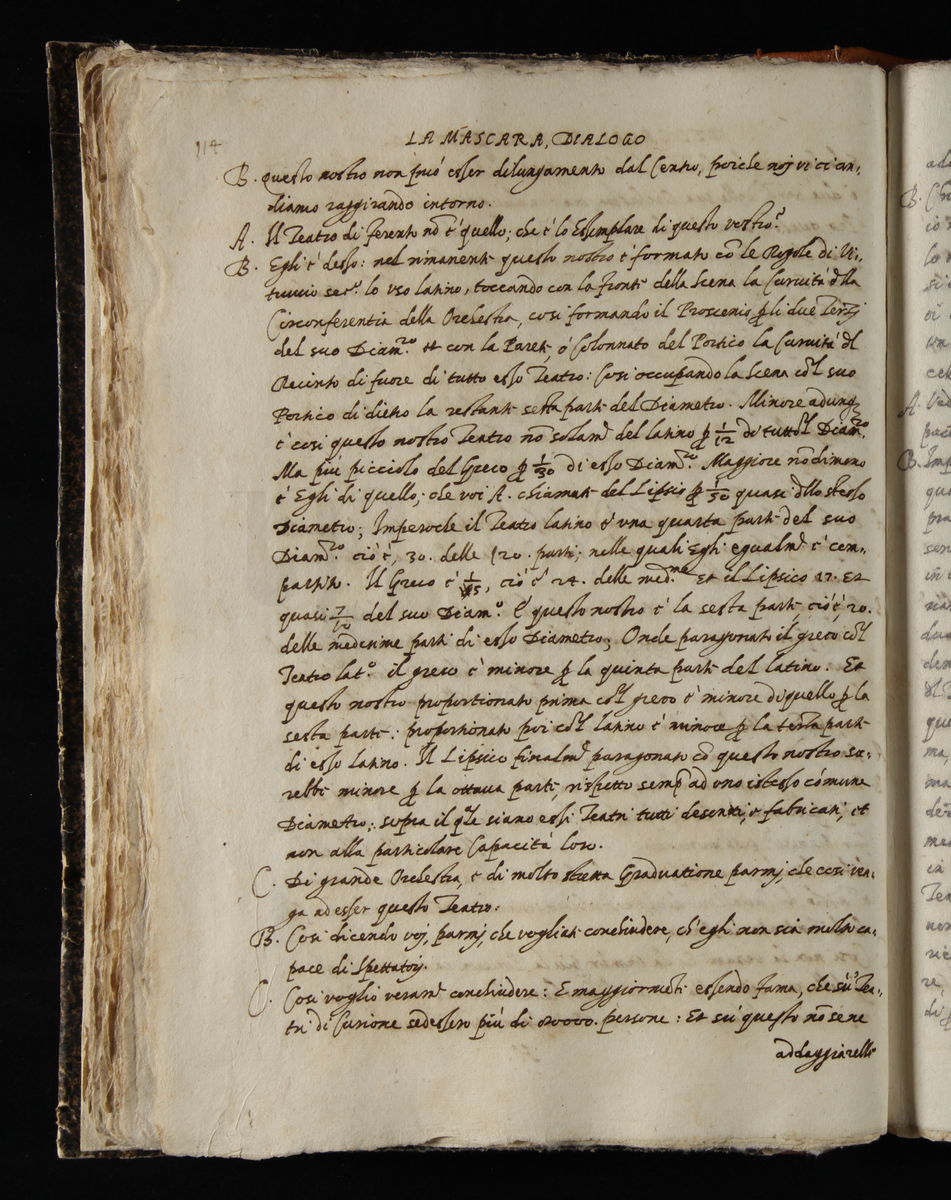 114
LA MASCARA, DIALOGO
B. Questo nostro non può esser dilungamento dal Centro, poiche noj vi ci an-
diamo raggirando intorno.
A. Il Teatro di ferento nõ è quello; che è lo Essemplare di questo vostro?
B. Egli è desso: nel rimanente questo nostro è formato cõ le Regole di Vi-
truuio sec.º lo vso latino, toccando con la fronte della Scena la Curuità dlla
Circonferentia della Orchestra, cosi formando il Proscenio p li due Terzj
del suo Diam.ro et con la Parete, ò Colonnato del Portico la Curuità dl
Recinto di fuore di tutto esso Teatro: Cosi occupando la Scena cõl suo
Portico di dietro la restante sesta parte del Diametro. Minore adunq
è cosi questo nostro Teatro nõ solam.e del latino p 1/12 di tutt'l Diam.ro
Ma più picciolo del Greco p 1/30 di esso Diam.ro Maggiore nõdimeno
è Egli di quello, che voi A. chiamate del Lipsio p 1/50 quasi dllo stesso
Diametro; Imperoche il Teatro latino è vna quarta parte del suo
Diam.ro ciò è, 30. delle 120. parti; nelle quali Egli egualm.e è com-
partito. Il Greco è 1/5, ciò è 24. delle med.me Et il Lipsico 17. Et
quasi 7/10 del suo Diam.º E questo nostro è la sesta parte, ciò è, 20.
delle medesime parti di esso Diametro; Onde paragonato il greco cõl
Teatro lat.º il greco è minore p la quinta parte del latino. Et
questo nostro proportionato prima cõl greco è minore di quello p la
sesta parte: proportionato poi cõl latino è minore p la terza parte
di esso latino. Il Lipsico finalm.e paragonato cõ questo nostro sa-
rebbe minore p la ottaua parte, rispetto semp ad uno istesso cómune
Diametro; supra il qle siano essi Teatri tutti descritti, e fabricati, et
non alla particolare Capacità loro.
C. Di grande Orchestra, e di molto stretta Graduatione parmj, che cosi ven-
ga ad esser questo Teatro.
B. Cosi dicendo voj, parmj, che vogliate conchiudere, ch'egli non sia molto ca-
pace di Spettatorj.
C. Cosi voglio veram.e conchiudere: E maggiormẽte essendo fama, che sù i Tea-
tri di Curione sedessero più di persone: Et sù questo nõ se ne
addaggiarelle